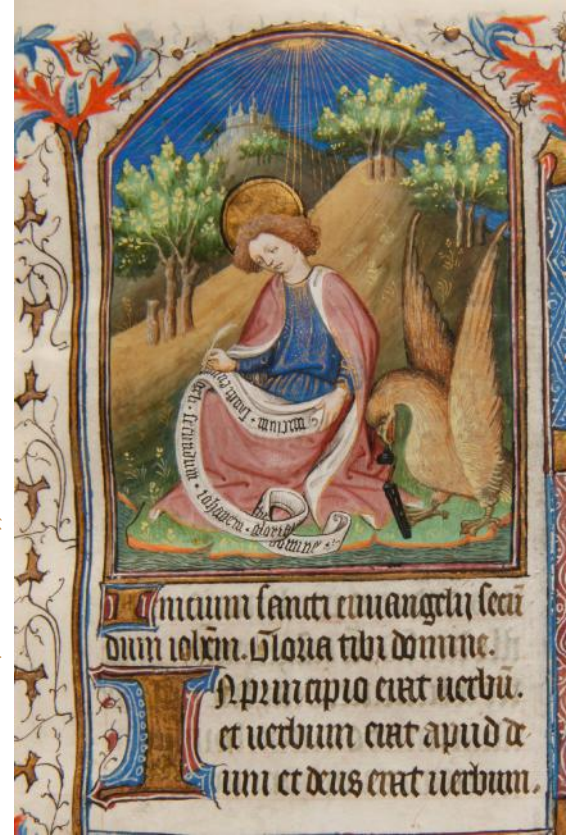 inicium · sancti ·
secundum · iohanem · gloria
domine ·
Inicium sancti euuangelij secū
dum iohēm. Gloria tibi domine.
IN principio erat uerbū.
et uerbum erat apud de
um et deus erat uerbum.